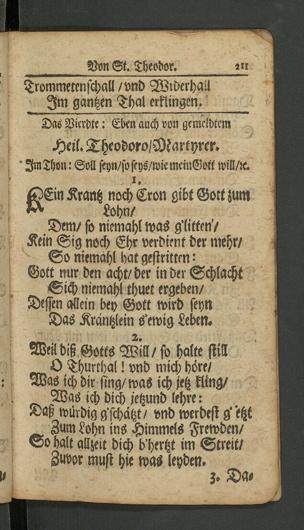 Von St. Theodor. 211
Trommetenschall / vnd Widerhall
Jm gantzen Thal erklingen.
Das Vierdte: Eben auch von gemeldtem
Heil. Theodoro / Martyrer.
Jm Thon: Soll seyn / so seys / wie mein Gott will / ꝛc.
1.
KEin Krantz noch Cron gibt Gott zum
Lohn /
Dem / so niemahl was g'litten /
Kein Sig noch Ehr verdient der mehr /
So niemahl hat gestritten:
Gott nur den acht / der in der Schlacht
Sich niemahl thuet ergeben /
Dessen allein bey Gott wird seyn
Das Kräntzlein s'ewig Leben.
2.
Weil diß Gotts Will / so halte still
O Thurthal! vnd mich höre /
Was ich dir sing / was ich jetz kling /
Was ich dich jetzund lehre:
Daß würdig g'schätzt / vnd werdest g'etzt
Zum Lohn ins Himmels Frewden /
So halt allzeit dich b'hertzt im Streit /
Zuvor must hie was leyden.
3. Da-